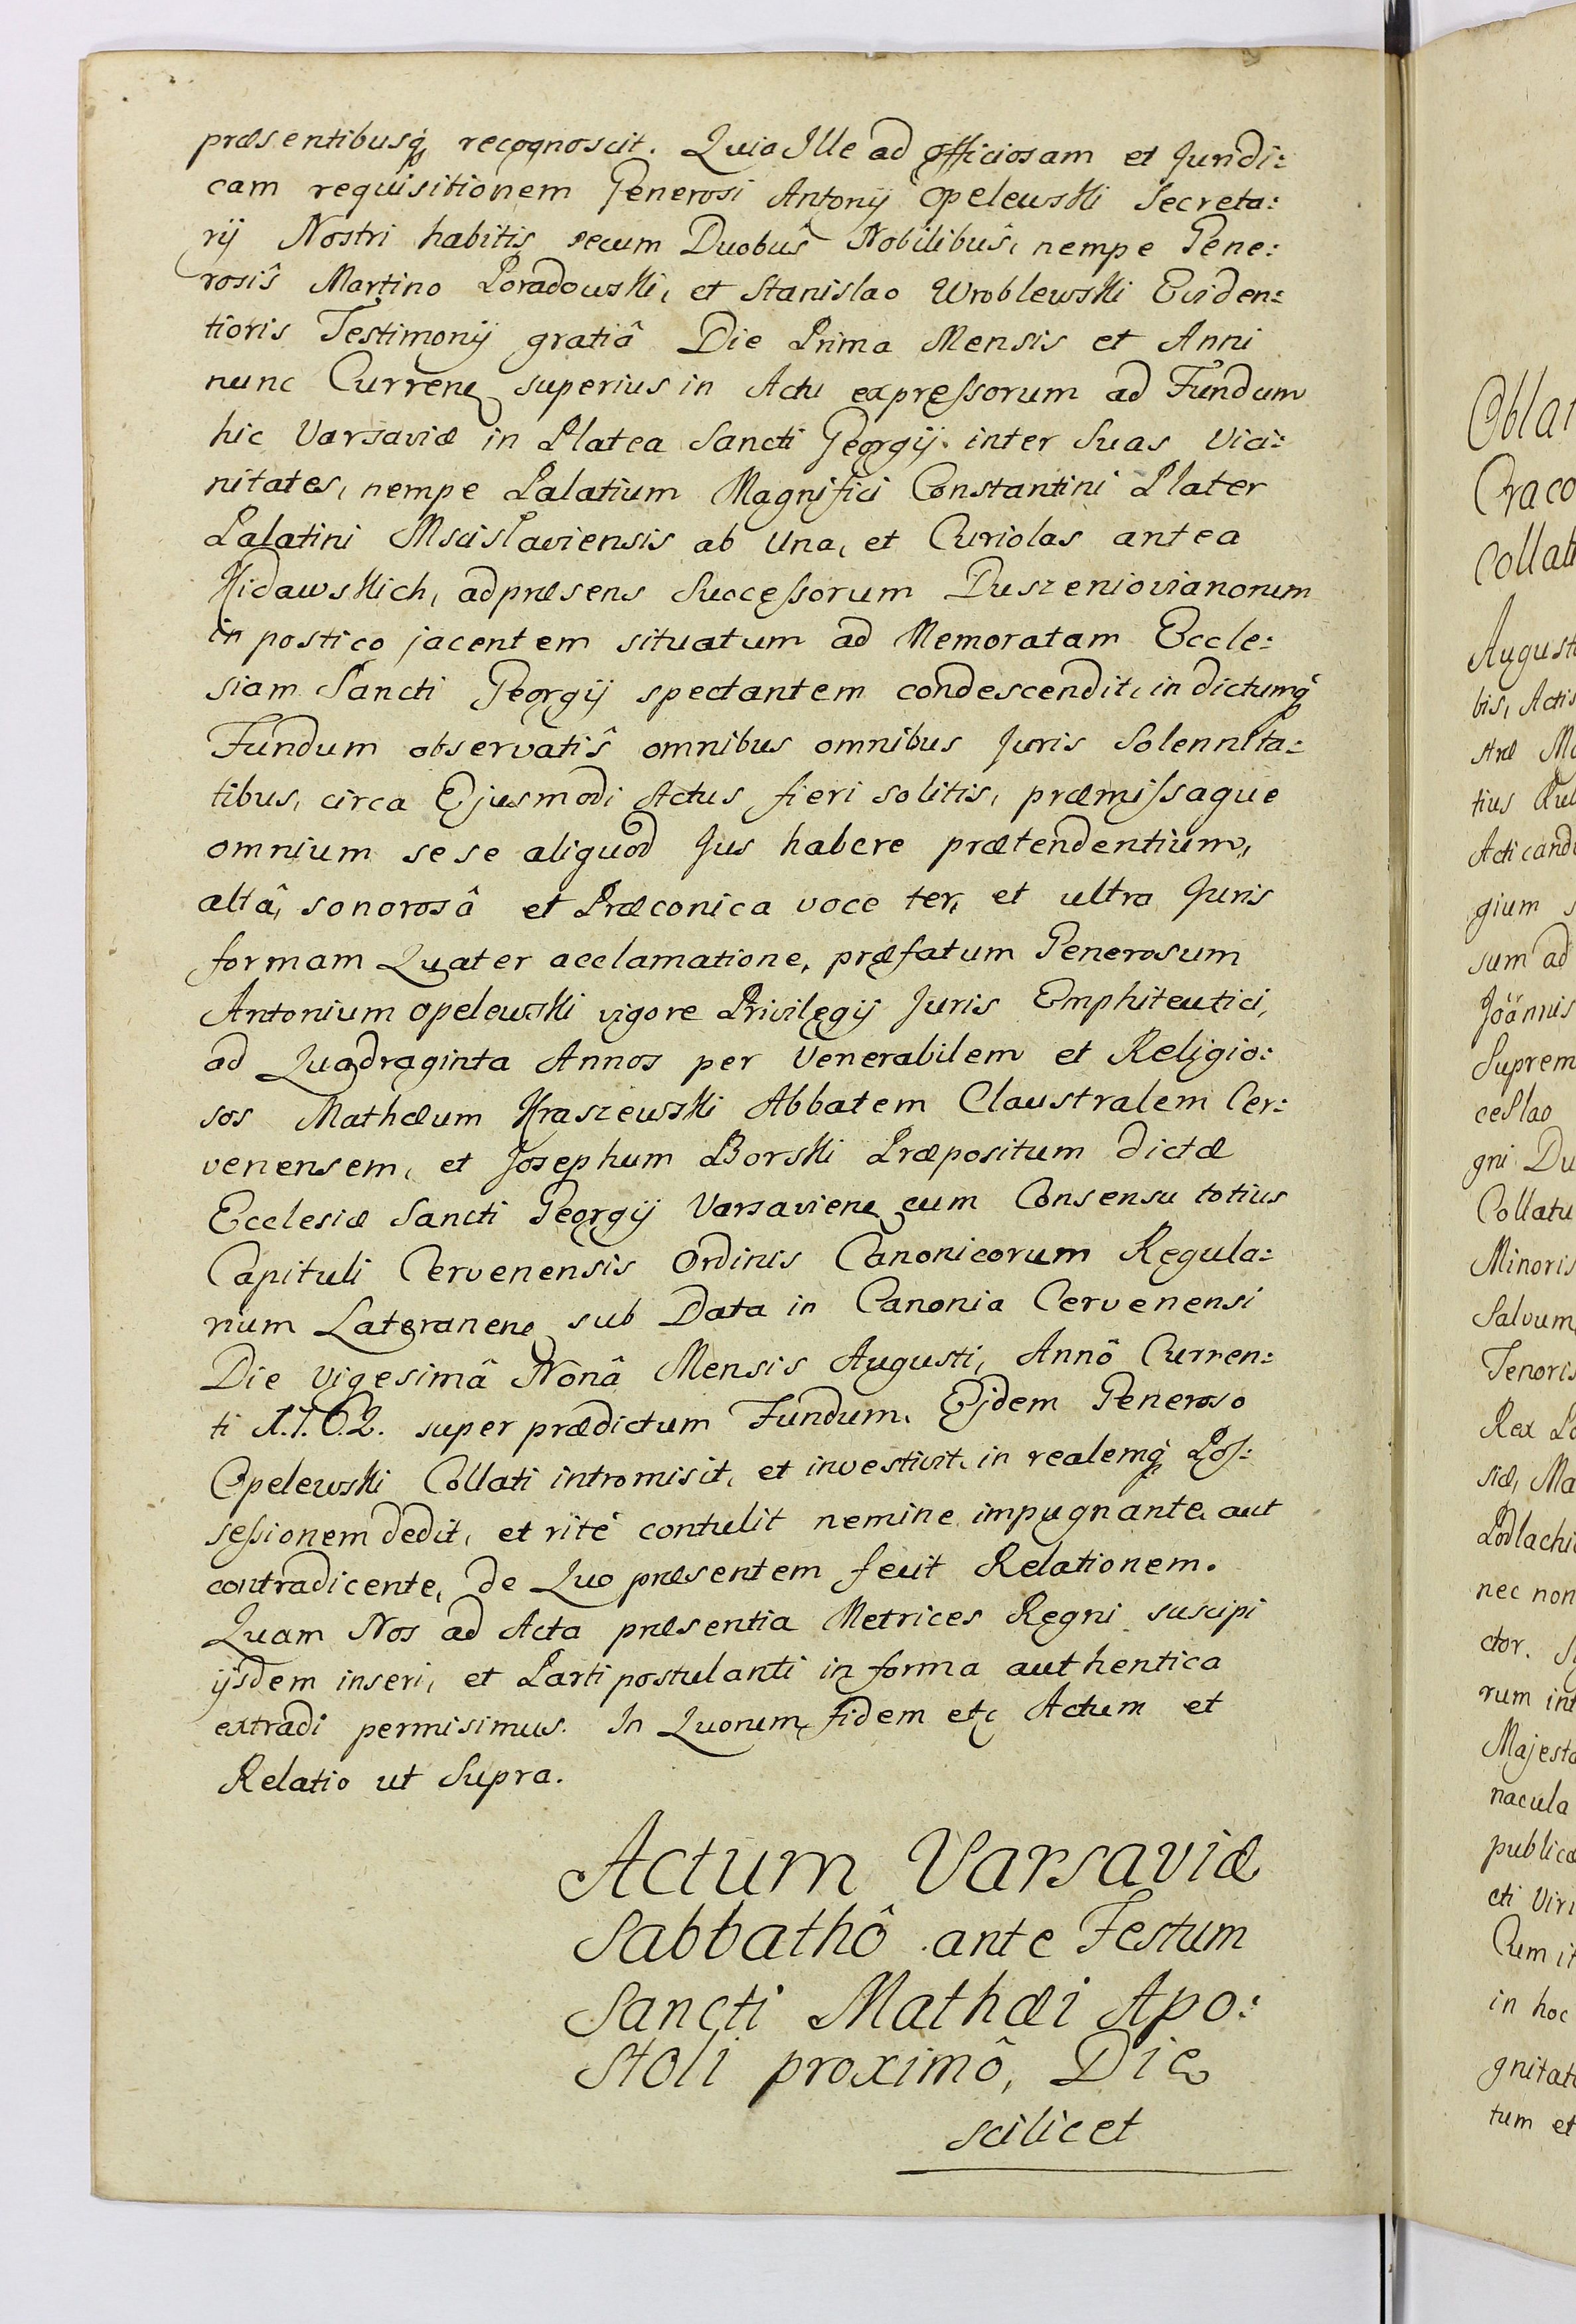 præsentibusq́ recognoscit. Quia Ille ad officiosam et Juridi:
cam requisitionem Generosi Antonij Opelewski Secreta:
rij Nostri habitis secum Duobuŝ Nobilibuŝ, nempe Gene:
rosiŝ Martino Poradowski, et Stanislao Wroblewski Eviden:
tioris Testimonij gratiâ Die Prima Mensis et Anni
nunc Curren superius in Actu expressorum ad Fundum
hic Varsaviæ in Platea Sancti Georgij inter Suas Vici:
nitates, nempe Palatium Magnifici Constantini Plater
Palatini Mscislaviensis ab Una, et Curiolas antea
Kidawskich, ad præsens Successorum Duszeniovianorum
in postico jacentem situatum ad Memoratam Eccle:
siam Sancti Georgij spectantem condescendit, in dictumq́
Fundum observatiŝ omnibus omnibus Juris Solennita:
tibus, circa Ejusmodi Actus fieri solitis, præmissaque
omnium sese aliquod Jus habere prætendentium,
altâ, sonorosâ et Præconica voce ter, et ultra Juris
formam Quater acclamatione, præfatum Generosum
Antonium Opelewski vigore Privilegij Juris Emphiteutici,
ad Quadraginta Annos per Venerabilem et Religio:
sos Mathæum Kraszewski Abbatem Claustralem Cer:
venensem, et Josephum Borski Præpositum dictæ
Ecclesiæ Sancti Georgij Varsavien cum Consensu totius
Capituli Cervenensis Ordinis Canonicorum Regula:
rium Lateranen sub Data in Canonia Cervenensi
Die vigesimâ Nonâ Mensis Augusti, Annô Curren:
ti 1.7.6.2. super prædictum Fundum. Ejdem Generoso
Opelewski Collati intromisit, et investivit, in realemq́ Pos:
sessionem dedit, et rité contulit nemine impugnante, aut
contradicente, de Quo præsentem fecit Relationem.
Quam Nos ad Acta præsentia Metrices Regni suscipi
ijsdem inseri, et Parti postulanti in forma authentica
extradi permisimus. In Quorum fidem etc Actum et
Relatio ut Supra.
Actum Varsaviæ
Sabbathô ante Festum
Sancti Mathæi Apo:
stoli proximô, Die
scilicet
Craco
Collat
August
bis, Actis
stræ
tius
gium
sum ad
Joännis
Suprem
ceslao
gni Du
Collatu
Minoris
Salvum
Tenoris
Rex
siæ, Ma
Podlachi
nec non
ctor.
rum int
Majesta
nacula
publicæ
cti Viri
Cum it
in hoc
gnitat
tum et